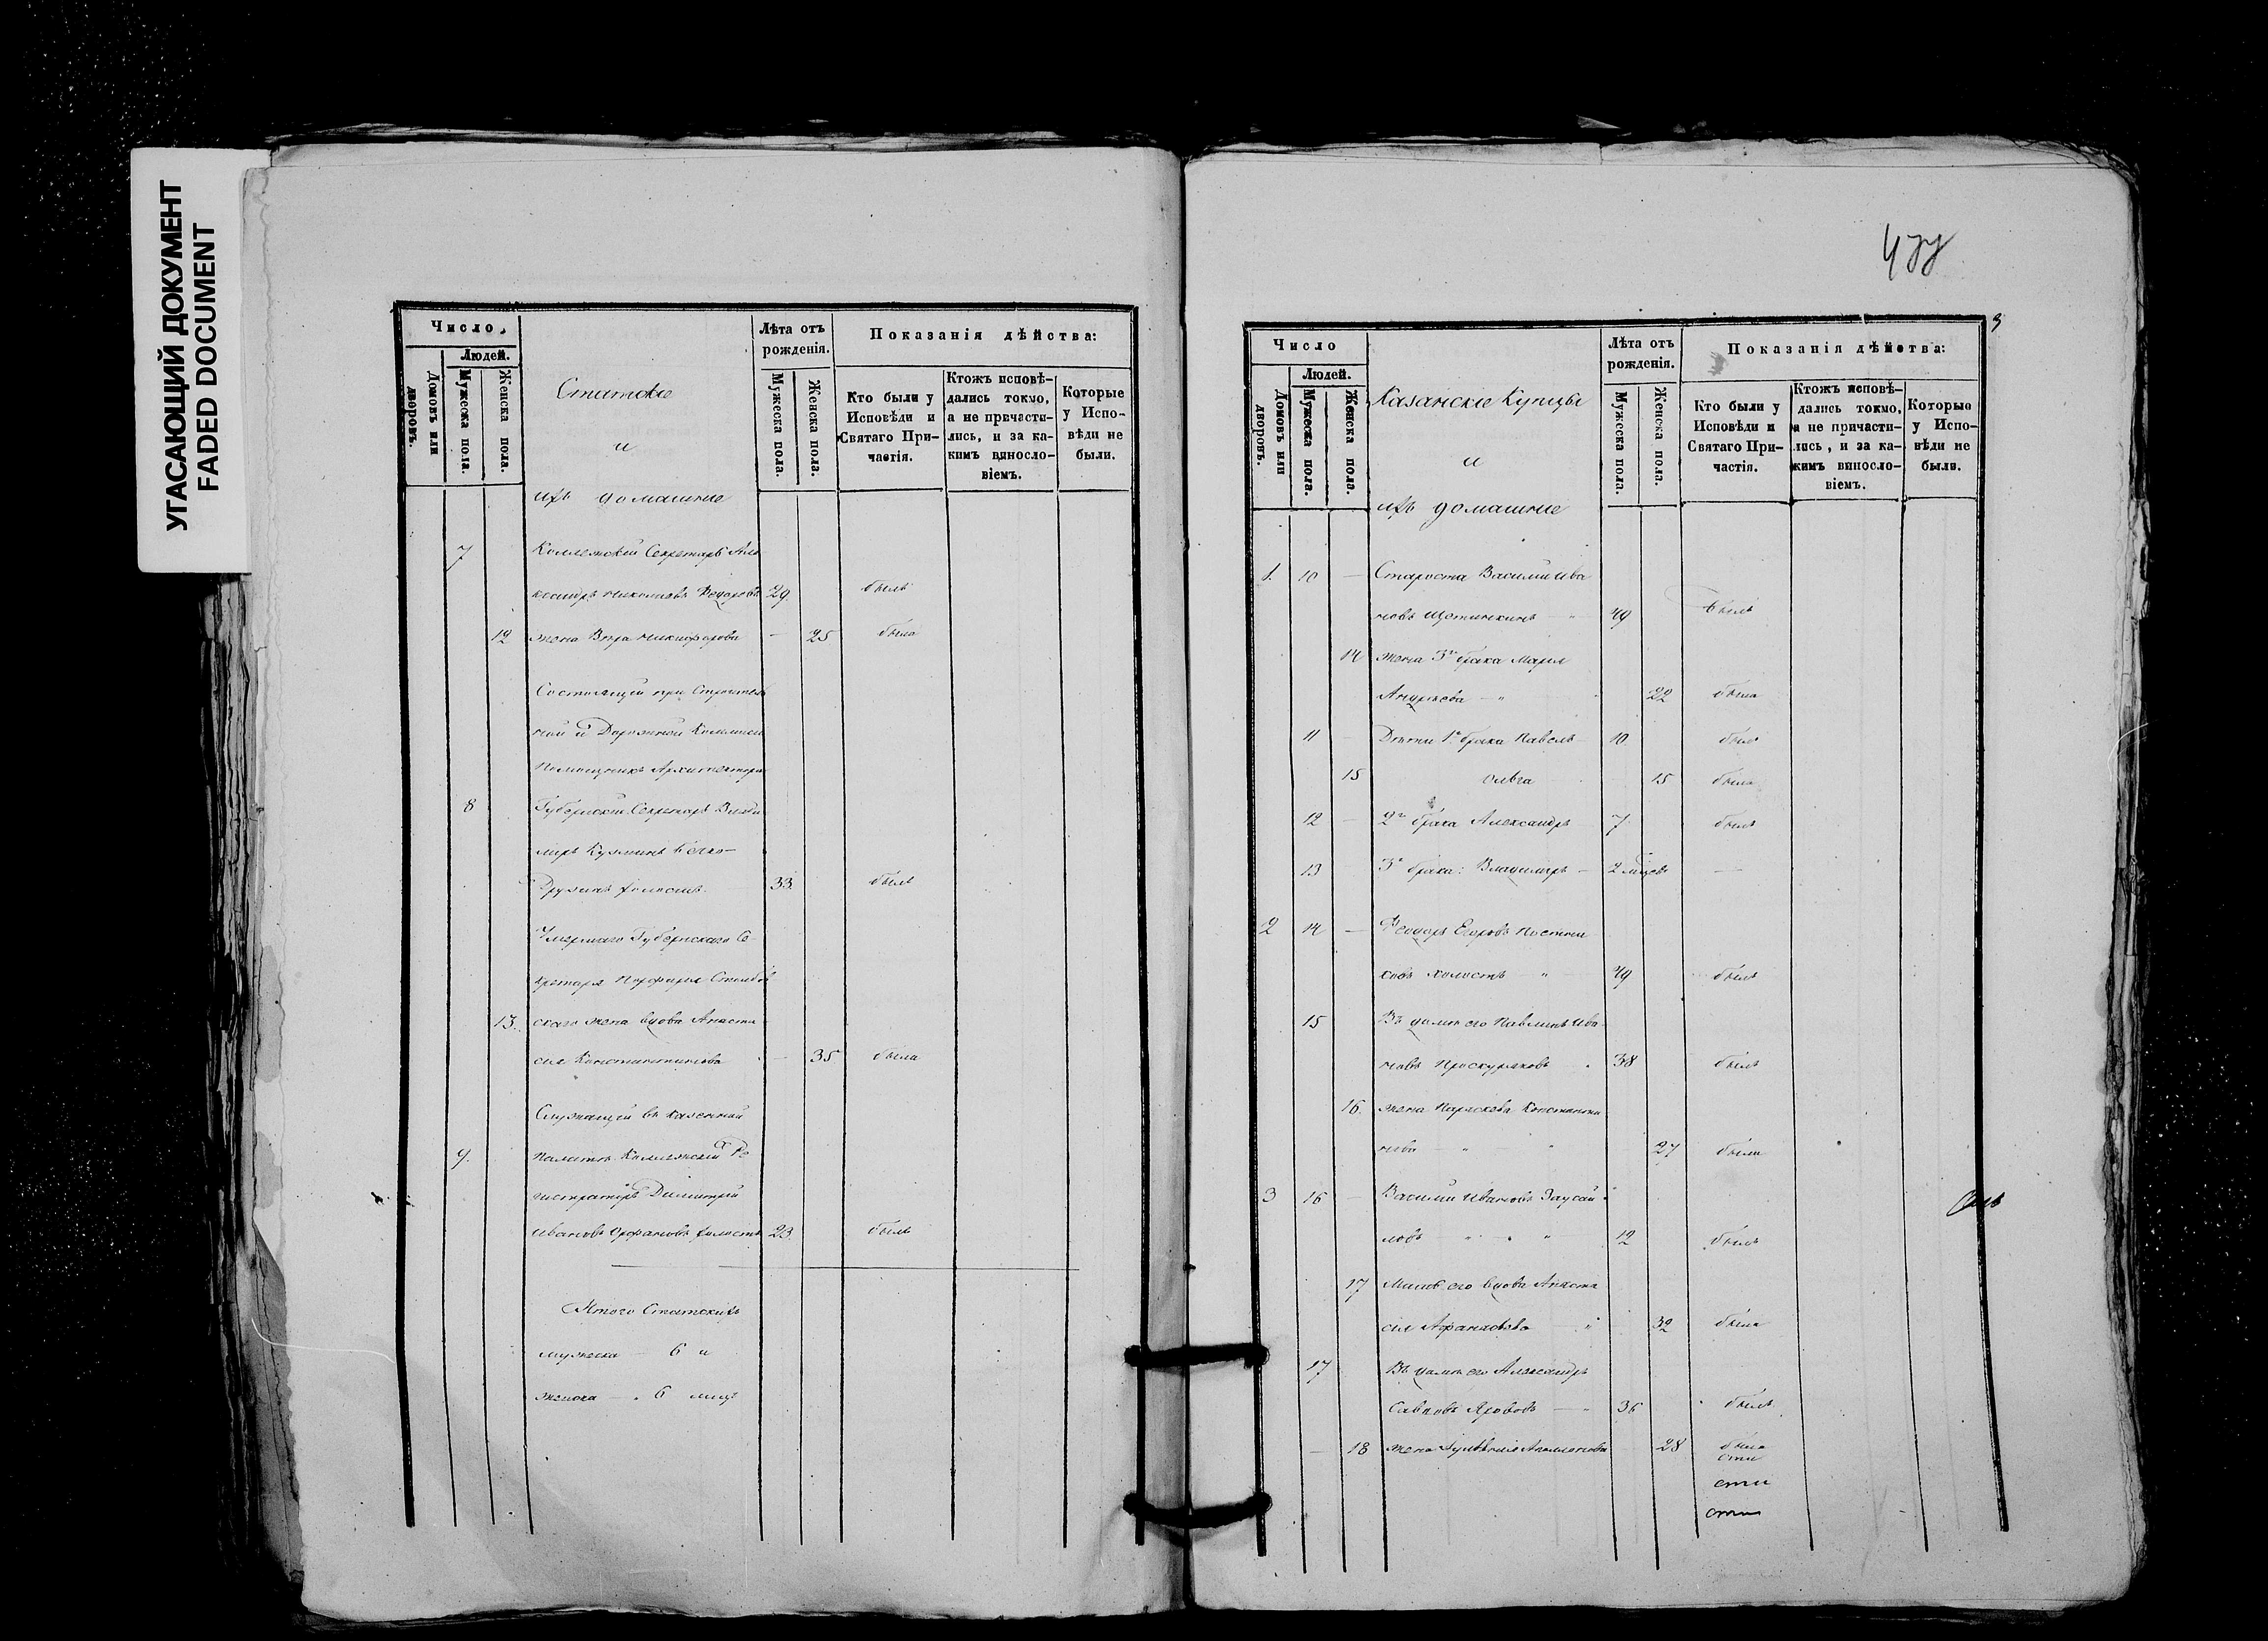 УГАСАЮЩИЙ ДОКУМЕНТ
FADED DOCUMENT
Число
Людей.
Домовъ или дворовъ.
Мужеска пола.
Женска пола.
Статские
и
ихъ домашние
Лѣта отъ рожденія.
Мужеска пола.
Женска пола.
Показанія дѣйства:
Кто были у Исповѣди и Святаго Причастія.
Ктожъ исповѣдались токмо, а не причастились, и за какимъ винословіемъ.
Которые у Исповѣди не были.
7 Коллежскій Секретарь Але
ксандръ Николаевъ 29 былъ
12 жена Вѣра Никифорова — 25 была
Состоящій при Строитель
ной и Дорожной Коммисіи
Помощникъ Архитектора
8 Губернскій Секретарь Влади
миръ Кузминъ
33 былъ
Умершаго Губернскаго Се
кретаря Порфирія
13 скаго жена вдова Анаста
сія Константинова — 35 была
Служащій въ Казенной
9 Палатѣ Коллежскій Ре
гистраторъ Димитрій
Ивановъ холостъ 23 былъ
Итого Статскихъ
мужеска — 6 и
женска — 6 лицъ
477
3
Число
Людей.
Домовъ или дворовъ.
Мужеска пола.
Женска пола.
Казанскіе Купцы
и
ихъ домашние
Лѣта отъ рожденія.
Мужеска пола.
Женска пола.
Показанія дѣйства:
Кто были у Исповѣди и Святаго Причастія.
Ктожъ исповѣдались токмо, а не причастились, и за какимъ винословіемъ.
Которые у Исповѣди не были.
1 10 — Староста Василій Ива
новъ Щетинкинъ — " 49 былъ
14 жена 3го брака Марія
Андреева — " 22 была
11 — Дѣти 1го брака Павелъ 10 былъ
15 Ольга 15 была
12 — 2го брака Александръ 7 былъ
13 — 3го брака: Владимиръ — 2 мѣсяцевъ —
2 14 — Ѳеодоръ Егоровъ
ковъ холостъ — " 49 былъ
15 Въ домѣ его Павлинъ Ива
новъ Проскуряковъ 38 былъ
16 жена Параскева Константи
нова — " — " 27 была
3 16 — Василій Ивановъ Заусай
ловъ — " — " 12 былъ
17 Мать его вдова Анаста
сія Афанасьева — " 32 была
17 Въ домѣ его Александръ
36 былъ
— 18 жена 28 была
сти
сти
сти